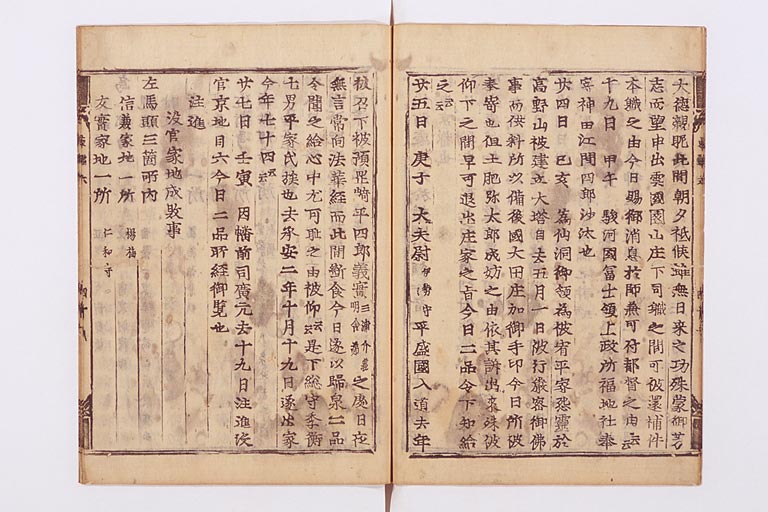 大徳親昵此間朝夕祗候雖無日来之功殊蒙御芳
志而望申出雲國園山庄下司職之間可被還補件
本職之由今日賜御消息於師兼可付都督之由云云
十九日 甲午 駿河國冨士領上政所福地社奉
寄神田江間四郎沙汰也
廿四日 己亥 為仙洞御願為被宥平家怨靈於
高野山被建立大塔自去五月一日被行厳密御佛
事而供料所以備後國大田庄加御手印今日所被
奉寄也但土肥弥太郎成妨之由依其訴出來殊被
仰下之間早可退出庄家之旨今日二品令下知給
之云云
廿五日 庚子 大夫尉伊勢守平盛國入道去年
被召下被預置崎平四郎義實三浦介義明舎弟之處日夜
無言常向法華経而此間断食今日遂以歸泉二品
令聞之給心中尤可耻之由被仰云云是下総守季衡
七男平家氏族也去承安二年十月十九日遂出家
今年七十四云云
廿七日 壬寅 因幡前司廣元去十九日注進没
官京地目六今日二品所経御覧也
注進
没官家地成敗事
左馬頭三箇所内
信兼家地一所 楊梅
文實家地一所 仁和寺